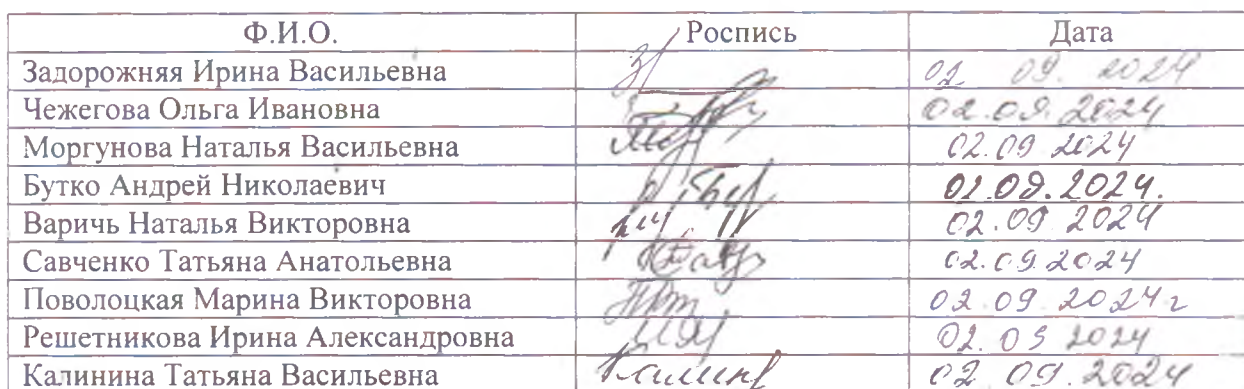 Ф.И.О. Роспись Дата
Задорожняя Ирина Васильевна 02 09. 2024
Чежегова Ольга Ивановна 02.09.2024
Моргунова Наталья Васильевна 02.09 2024
Бутко Андрей Николаевич 02.09.2024.
Варичь Наталья Викторовна 02.09 2024
Савченко Татьяна Анатольевна 02.09.2024
Поволоцкая Марина Викторовна 02.09 2024г
Решетникова Ирина Александровна 02.09 2024
Калинина Татьяна Васильевна 02.09.2024